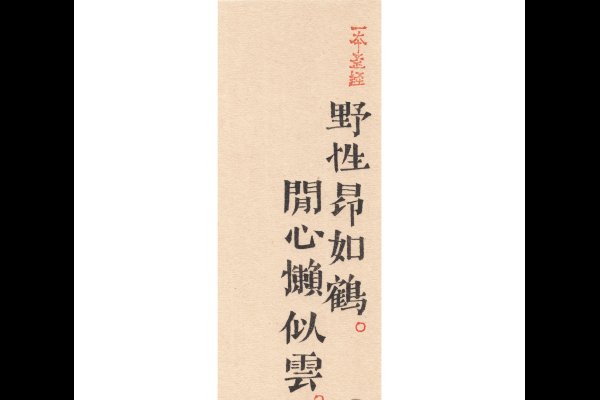 一本歪經
野性昂如鶴。
閒心懶似雲。